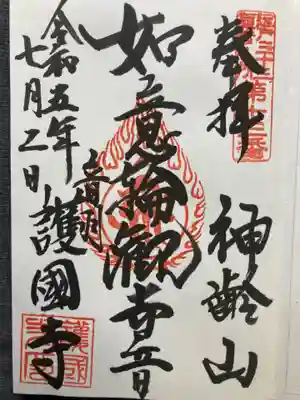 奉拝 神齢山
如意輪観世音
音羽 護國寺
令和五年
七月二日